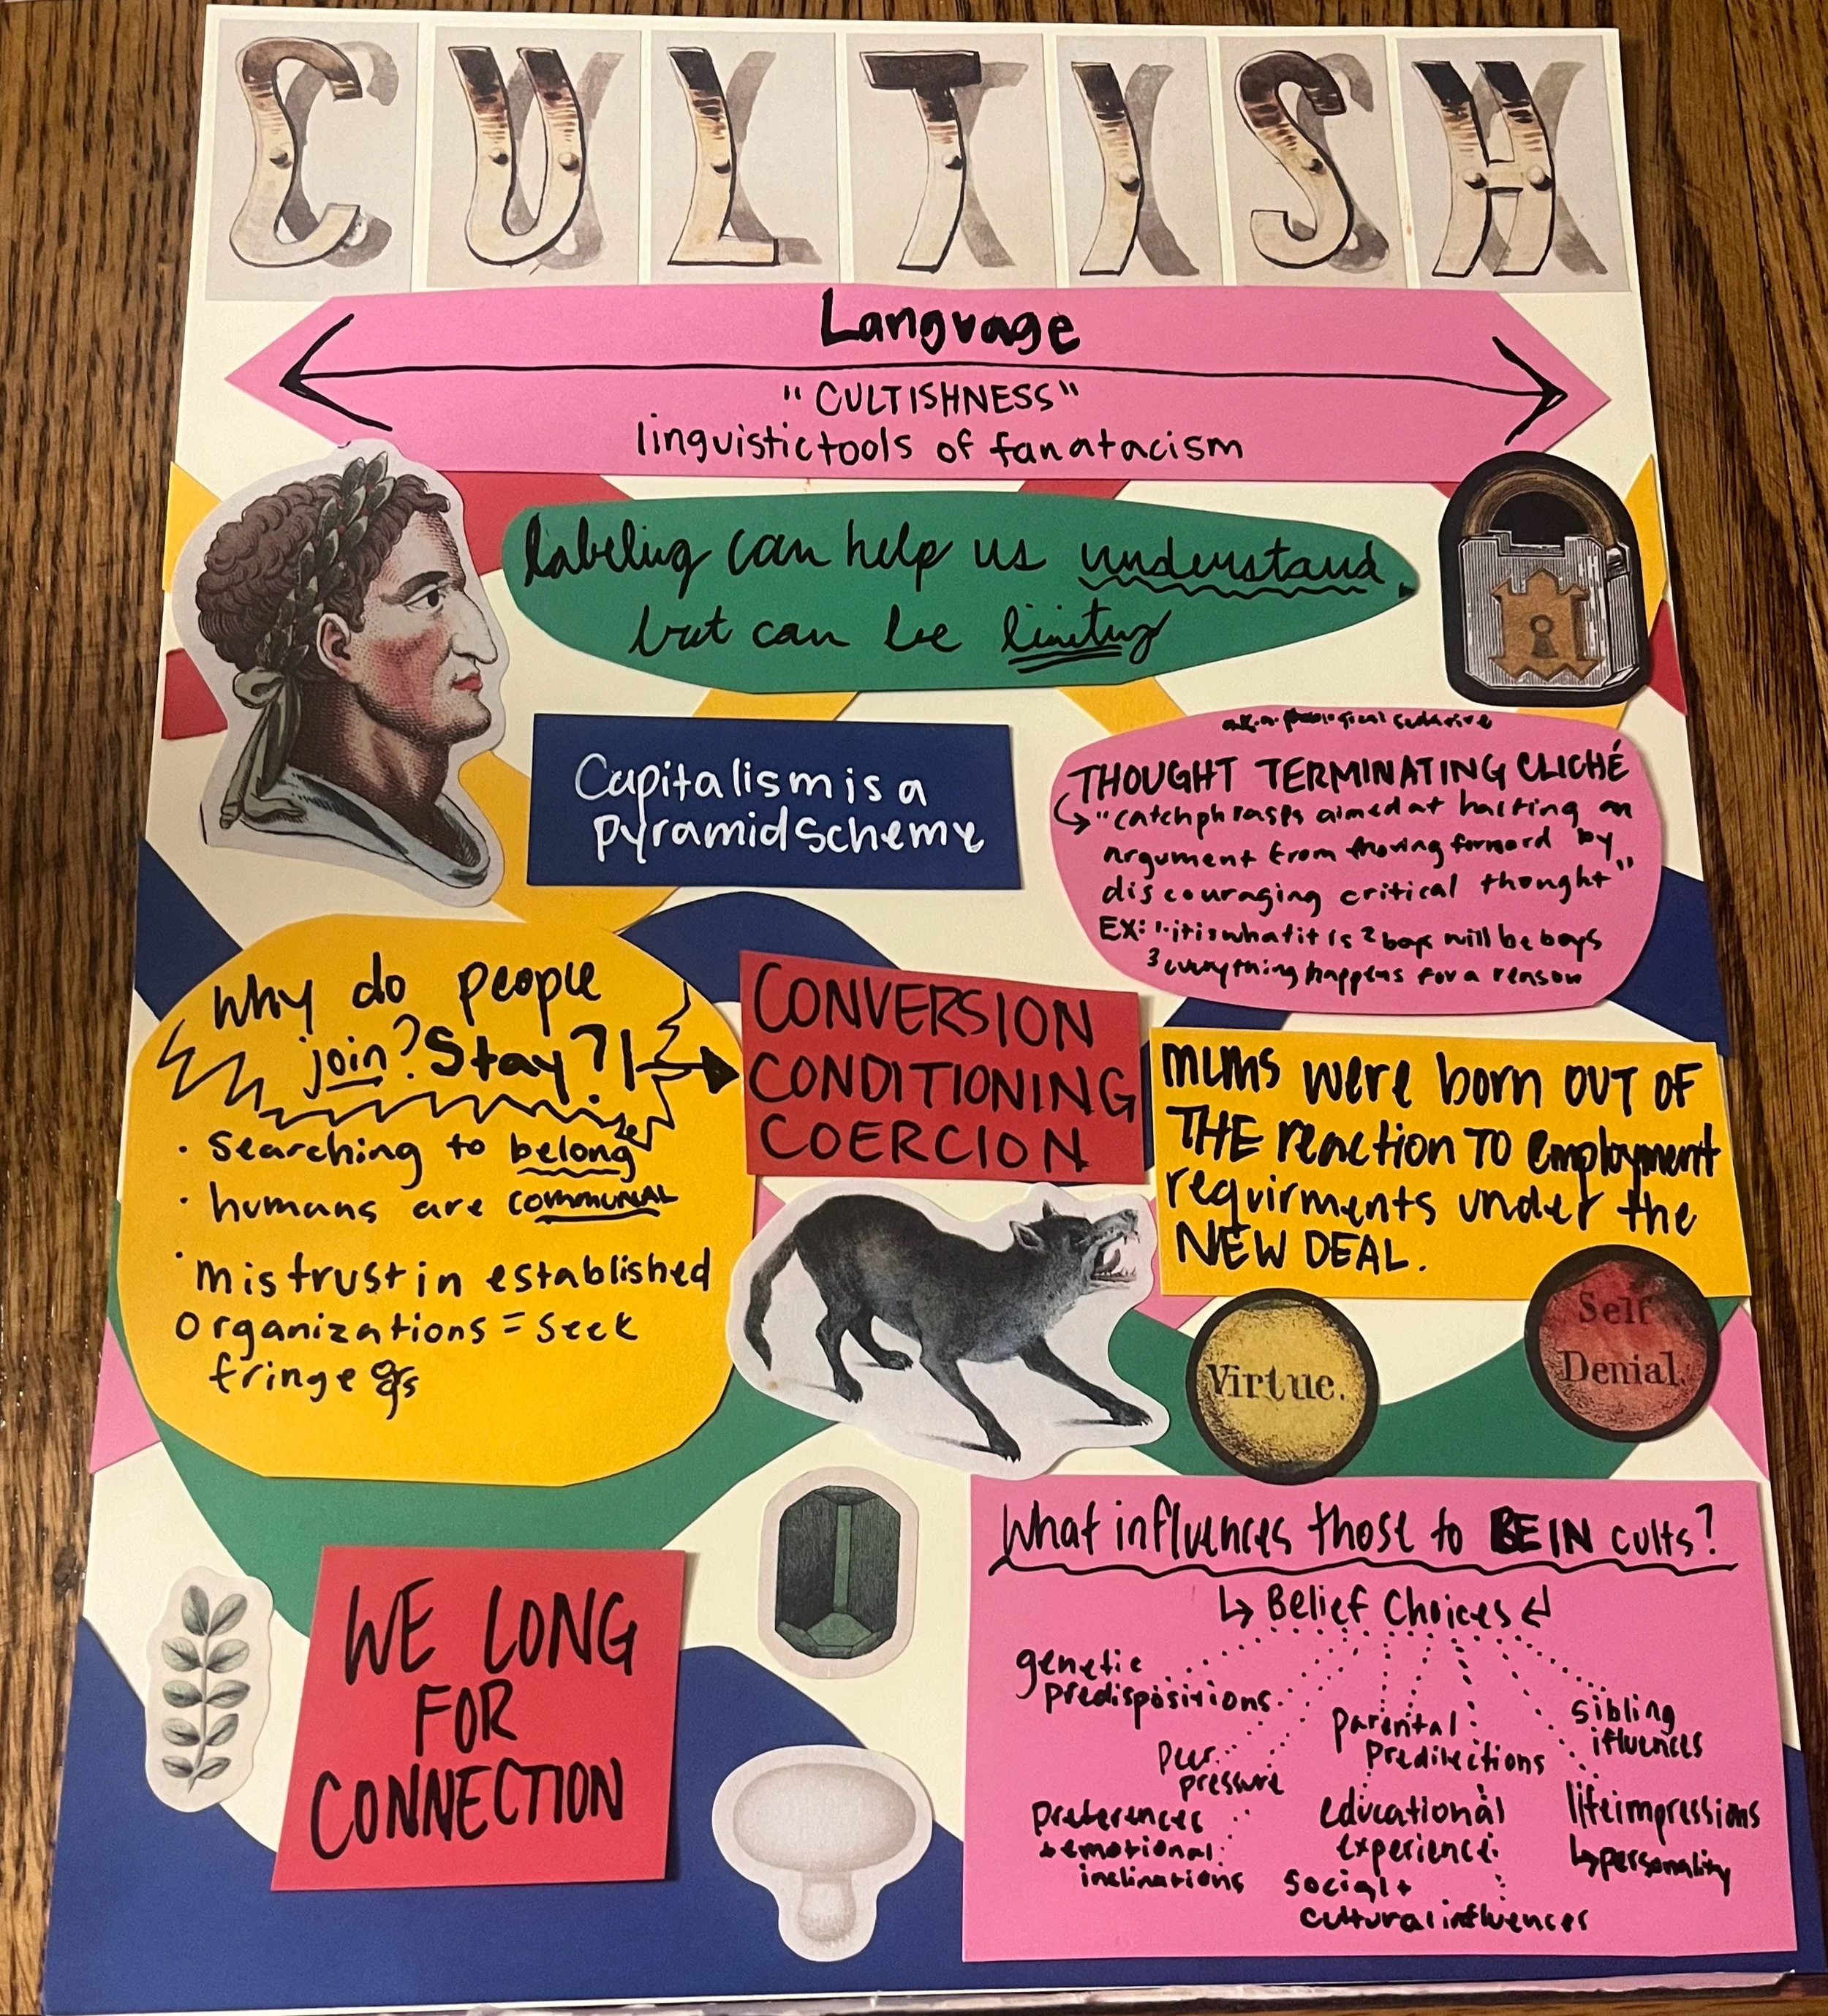 CULTISH
Language
"CULTISHNESS"
linguistic tools of fanatacism
labeling can help us understand,
but can be limiting
Capitalism is a
pyramid scheme
a.k.a.
THOUGHT TERMINATING CLICHÉ
↳ "catchphrases aimed at halting an
argument from moving forward by
discouraging critical thought"
EX: 1. it is what it is 2 boys will be boys
3 everything happens for a reason
Why do people
join? Stay?!
· Searching to belong
· humans are COMMUNAL
· mistrust in established
organizations = seek
fringe
CONVERSION
CONDITIONING
COERCION
MLMS were born OUT OF
THE reaction TO employment
requirments under the
NEW DEAL.
Self
Denial.
Virtue.
What influences those to BE IN cults?
↳ Belief Choices ↲
genetic
predispositions
parental
predilections
sibling
ifluences
peer
pressure
preferences
+ emotional
inclinations
educational
experience
life impressions
↳ personality
Social +
cultural influences
WE LONG
FOR
CONNECTION